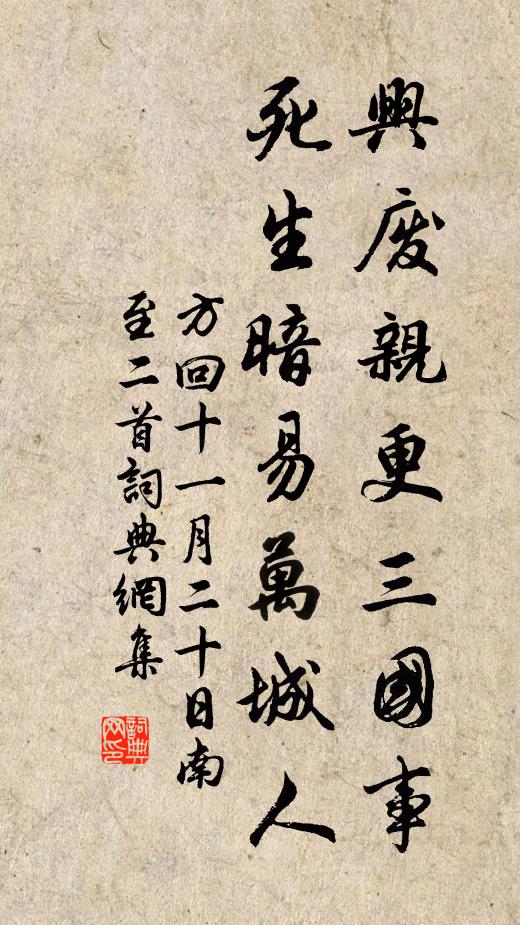 興廢親更三國事
死生暗易萬城人
方回十一月二十日南
至二首詞典網集
詞典
网印